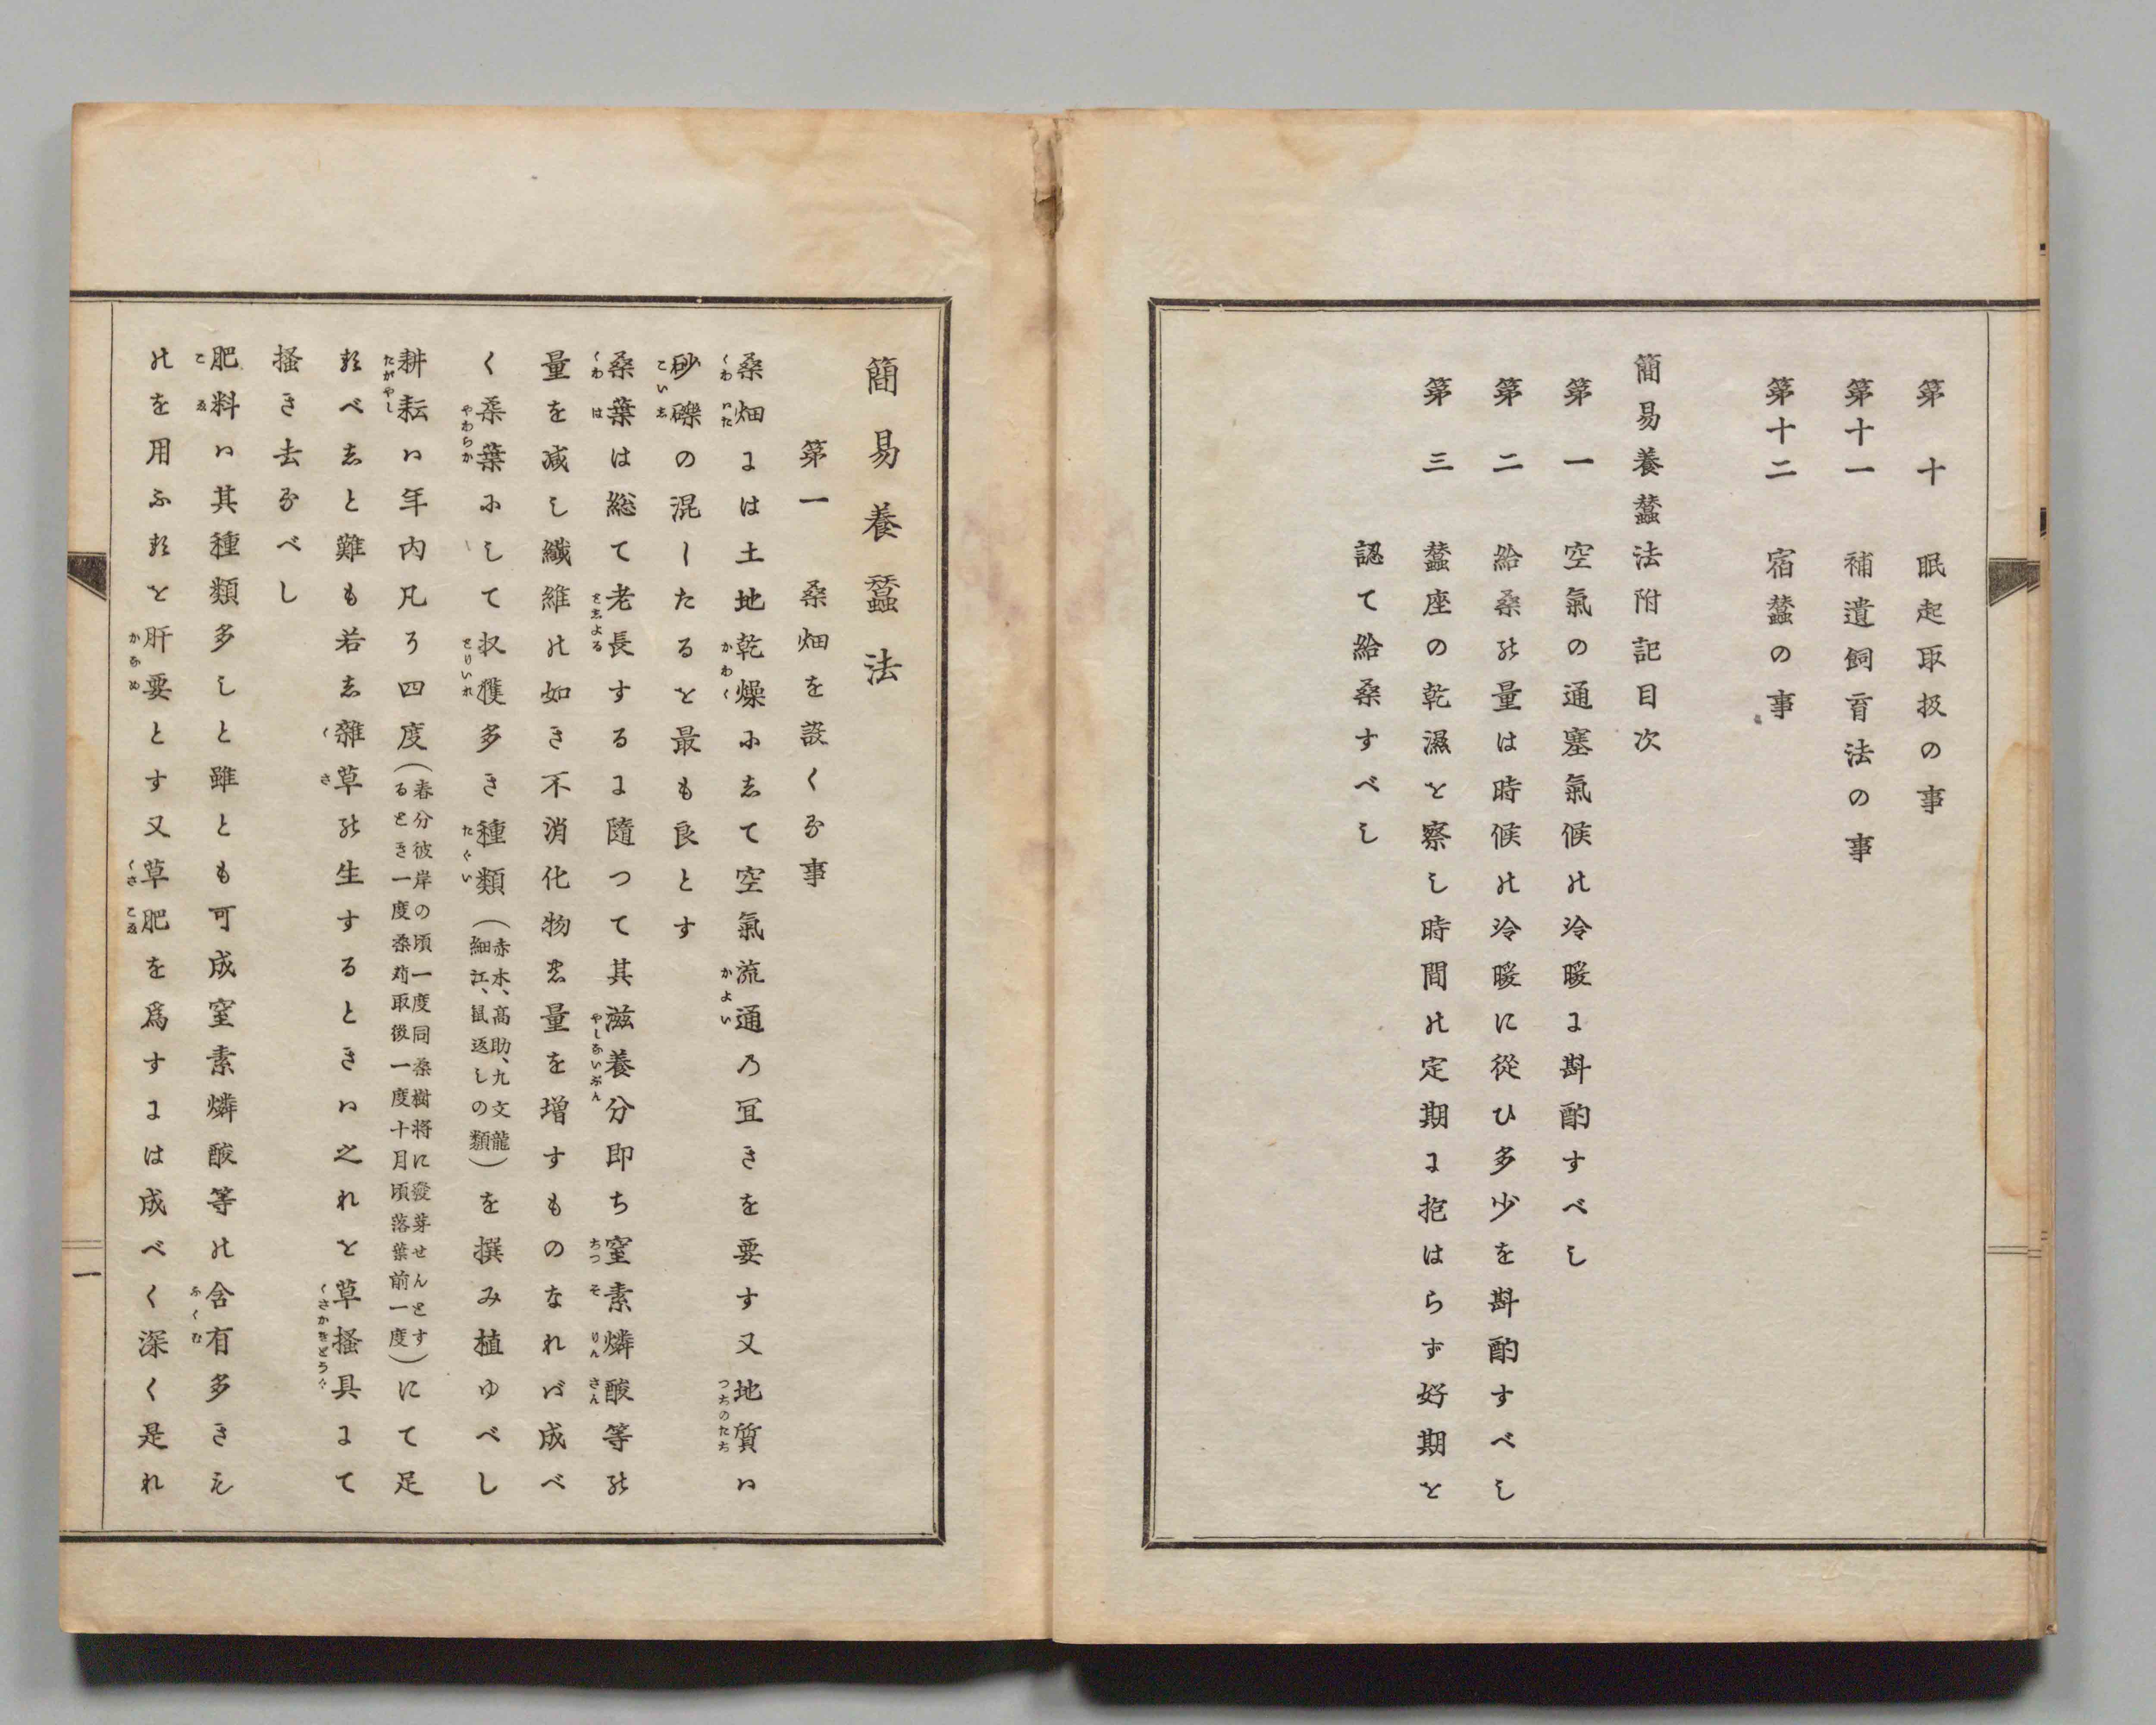 第十　眠起取扱の事
第十一　補遺飼育法の事
第十二　宿蠶の事
簡易養蠶法附記目次
第一　空氣の通塞氣候の冷暖に斟酌すべし
第二　給桑の量は時候の冷暖に從ひ多少を斟酌すべし
第三　蠶座の乾濕を察し時間の定期に抱はらず好期を
認て給桑すべし
簡易養蠶法
第一　桑畑を設くる事
桑畑には土地乾燥にして空氣流通乃冝きを要す又地質ハ
くわ はた かわく かよい つちのたち
砂礫の混したるを最も良とす
こいし
桑葉は総て老長するに隨つて其滋養分即ち窒素燐酸等の
くわ は せいよる やしないぶん ちつ そ りん さん
量を减し纖維の如き不消化物の量を増すものなれバ成べ
く桑葉にして収獲多き種類（赤木、高助、九文龍細江、鼠返しの類）を撰み植ゆべし
やわらか とりいれ たぐい
耕耘ハ年内凡そ四度（春分彼岸の頃一度同桑樹将に發芽せんとするとき一度桑苅取後一度十月頃落葉前一度）にて足
たがやし
るべしと難も若し雜草の生するときハ之れを草掻具にて
くさ くさかきどうぐ
掻き去るべし
肥料ハ其種類多しと雖とも可成窒素燐酸等の含有多きも
こゑ ふくむ
のを用ふると肝要とす又草肥を爲すには成べく深く是れ
かなめ くさ こゑ
一